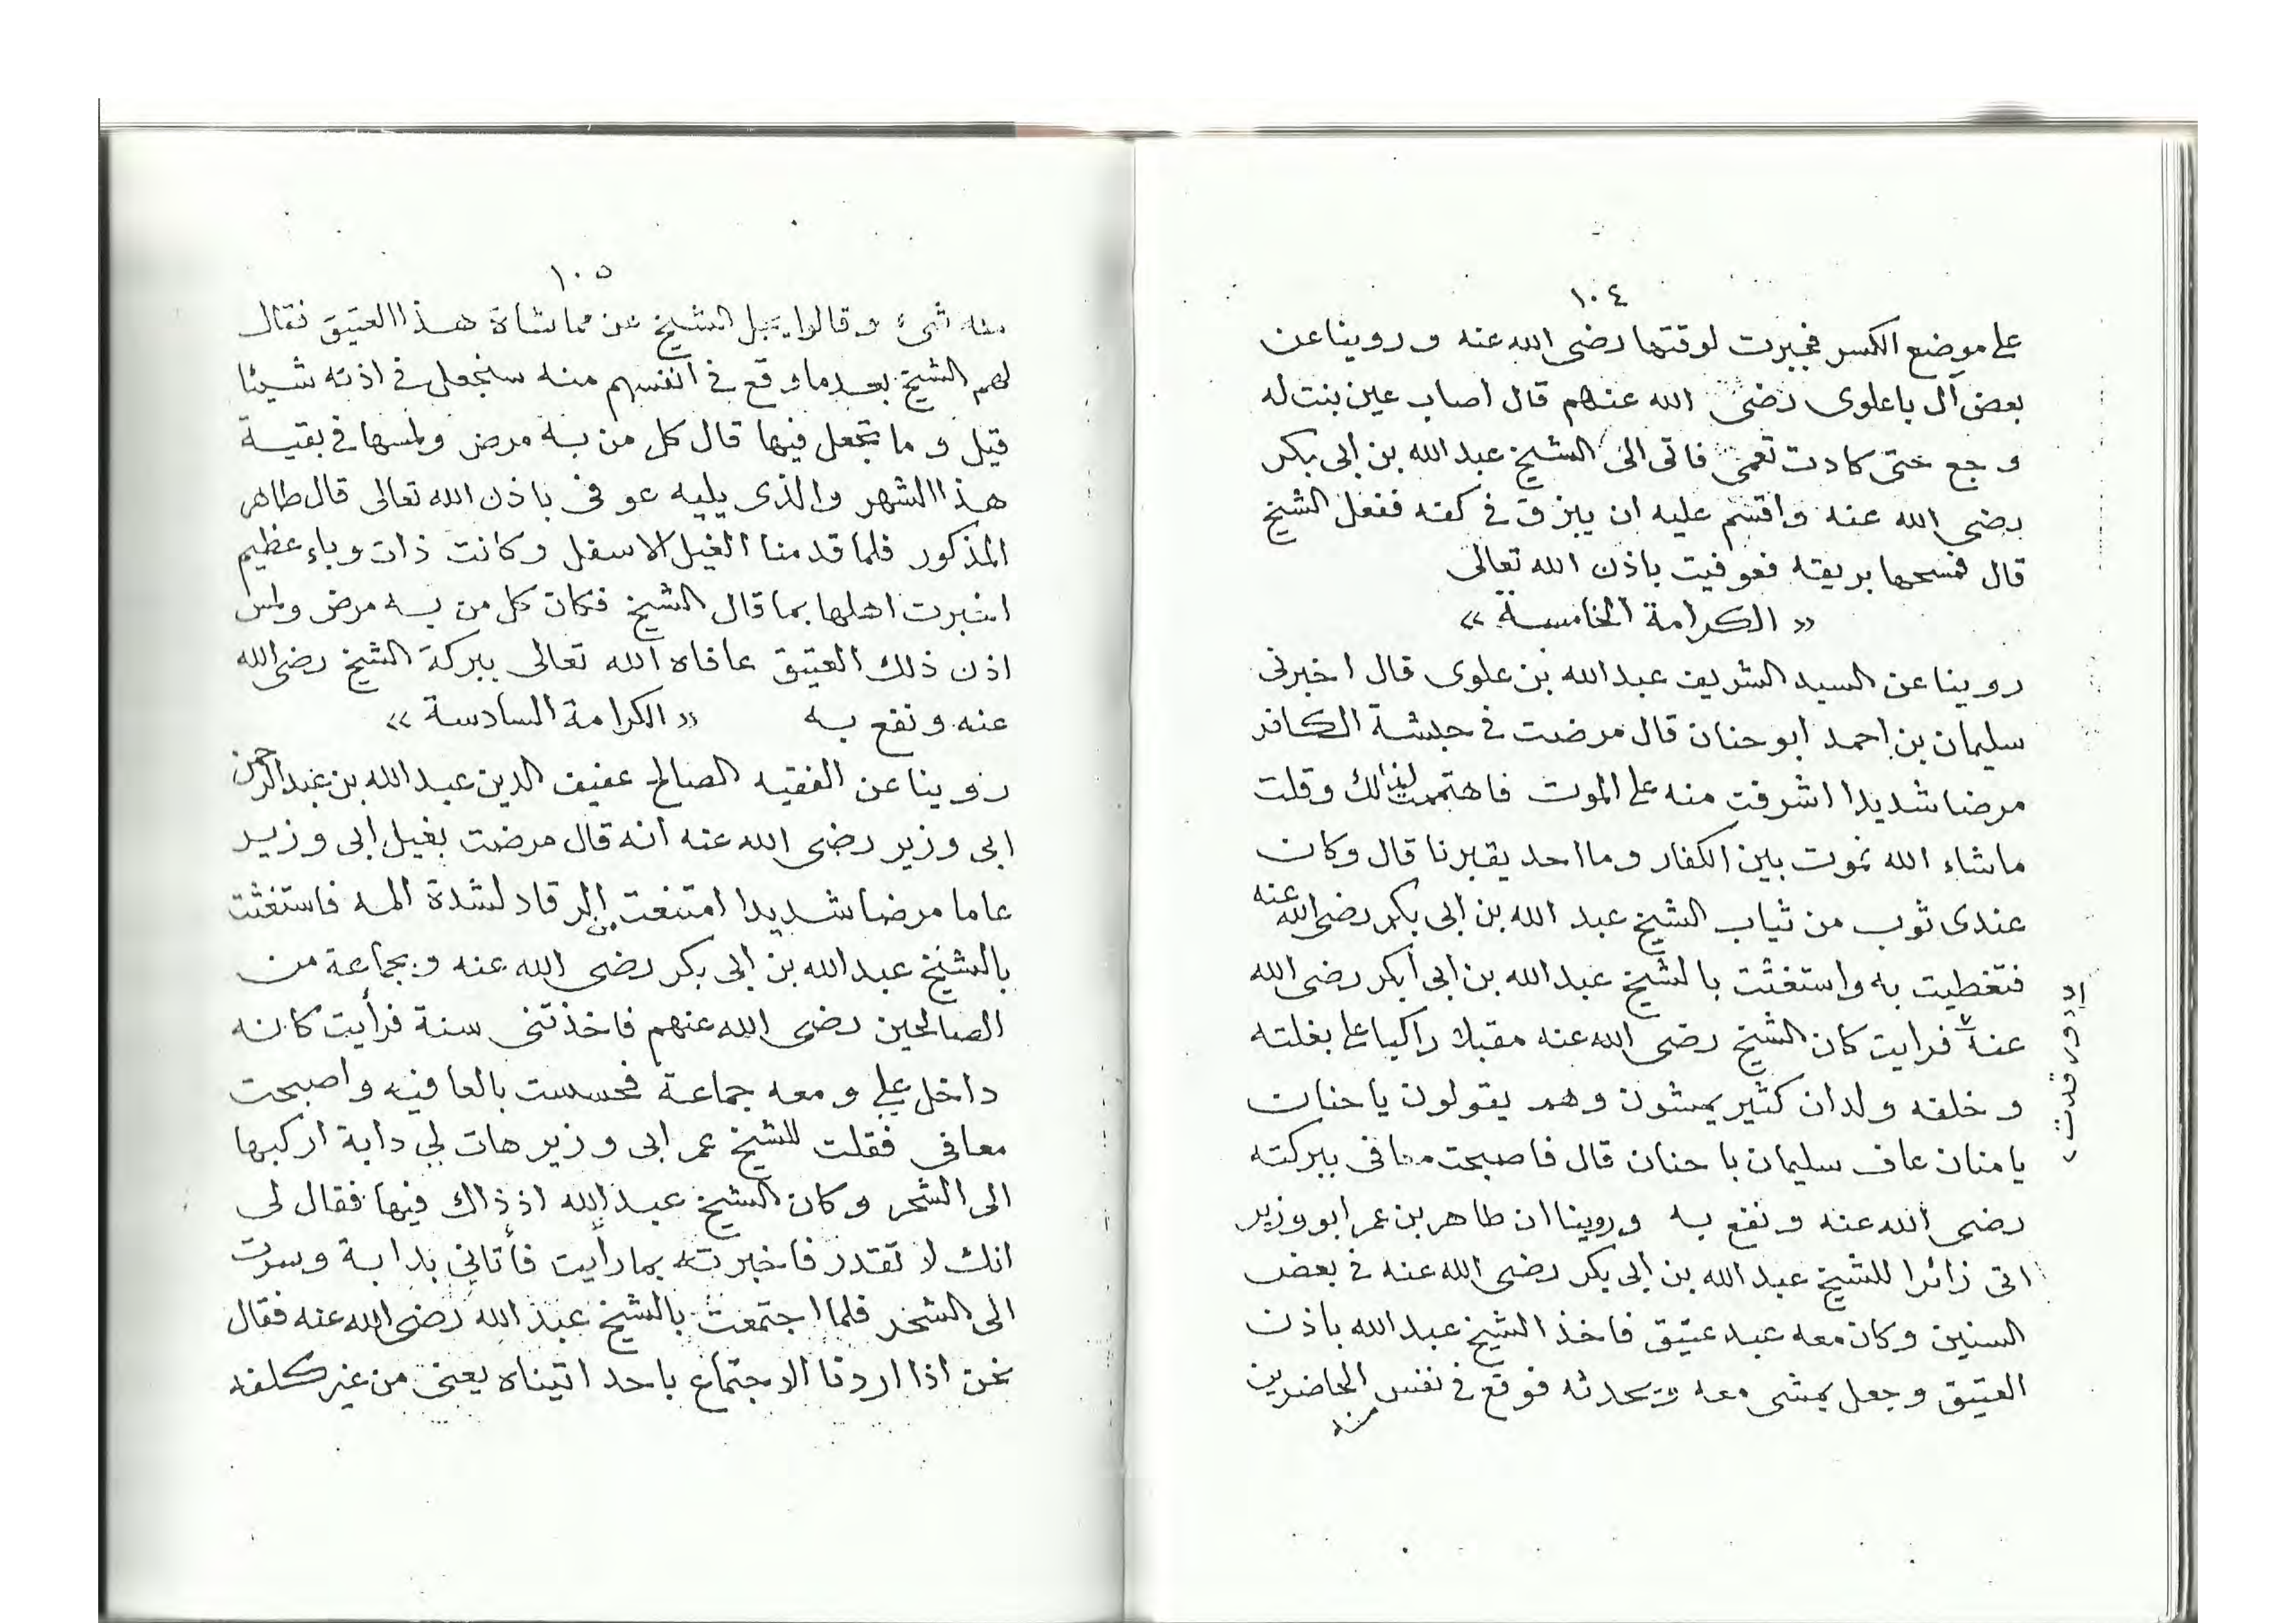 ١٠٤
على موضع الكسر فجبرت لوقتها رضى الله عنه وروينا عن
بعض آل باعلوى رضى الله عنهم قال اصاب عين بنت له
وجع حتى كادت تعمى فاتى الى الشيخ عبد الله بن ابى بكر
رضى الله عنه واقسم عليه ان يبزق فى كفه ففعل الشيخ
قال فمسحها بريقه فعوفيت باذن الله تعالى
« الكرامة الخامسة »
روينا عن السيد الشريف عبد الله بن علوى قال اخبرنى
سليمان بن احمد ابو حنان قال مرضت فى حبشة الكافر
مرضا شديدا اشرفت منه على الموت فاهتممت لذالك وقلت
ماشاء الله نموت بين الكفار وما احد يقبرنا قال وكان
عندى ثوب من ثياب الشيخ عبد الله بن ابى بكر رضى الله عنه
فتغطيت به واستغثت بالشيخ عبد الله بن ابى بكر رضى الله
عنه فرايت كان الشيخ رضى الله عنه مقبلا راكبا على بغلته
وخلفه ولدان كثير يمشون وهم يقولون يا حنان
يا منان عاف سليمان با حنان قال فاصبحت معافى ببركته
رضى الله عنه ونفع به وروينا ان طاهر بن عمر ابو وزير
اتى زائرا للشيخ عبد الله بن ابى بكر رضى الله عنه فى بعض
السنين وكان معه عبد عتيق فاخذ الشيخ عبد الله باذن
العتيق وجعل يمشى معه ويحدثه فوقع فى نفس الحاضرين
منه
١٠٥
منه شىء وقالوا يجل الشيخ عن مماشاة هذا العتيق فقال
لهم الشيخ بعد ما وقع فى انفسهم منه سنجعل فى اذنه شيئا
قيل وما تجعل فيها قال كل من به مرض ولمسها فى بقية
هذا الشهر والذى يليه عوفى باذن الله تعالى قال طاهر
المذكور فلما قدمنا الغيل الاسفل وكانت ذات وباء عظيم
اخبرت اهلها بما قال الشيخ فكان كل من به مرض ولمس
اذن ذلك العتيق عافاه الله تعالى ببركة الشيخ رضى الله
عنه ونفع به « الكرامة السادسة »
روينا عن الفقيه الصالح عفيف الدين عبد الله بن عبد الرحمن
ابى وزير رضى الله عنه انه قال مرضت بغيل ابى وزير
عاما مرضا شديدا امتنعت من الرقاد لشدة المه فاستغثت
بالشيخ عبد الله بن ابى بكر رضى الله عنه وبجماعة من
الصالحين رضى الله عنهم فاخذتنى سنة فرأيت كانه
داخل علي ومعه جماعة فحسست بالعافيه واصبحت
معافى فقلت للشيخ عمر ابى وزير هات لي دابة اركبها
الى الشحر وكان الشيخ عبد الله اذ ذاك فيها فقال لى
انك لا تقدر فاخبرته بما رأيت فأتاني بدابة وسرت
الى الشحر فلما اجتمعت بالشيخ عبد الله رضى الله عنه فقال
نحن اذا اردنا الاجتماع باحد اتيناه يعنى من غير كلفه